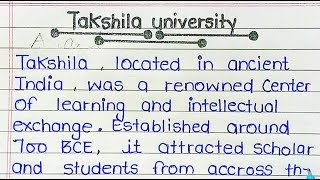 Takshila university
Takshila, located in ancient
India, was a renowned Center
of learning and intellectual
exchange. Established around
700 BCE, it attracted scholar
and students from accross th